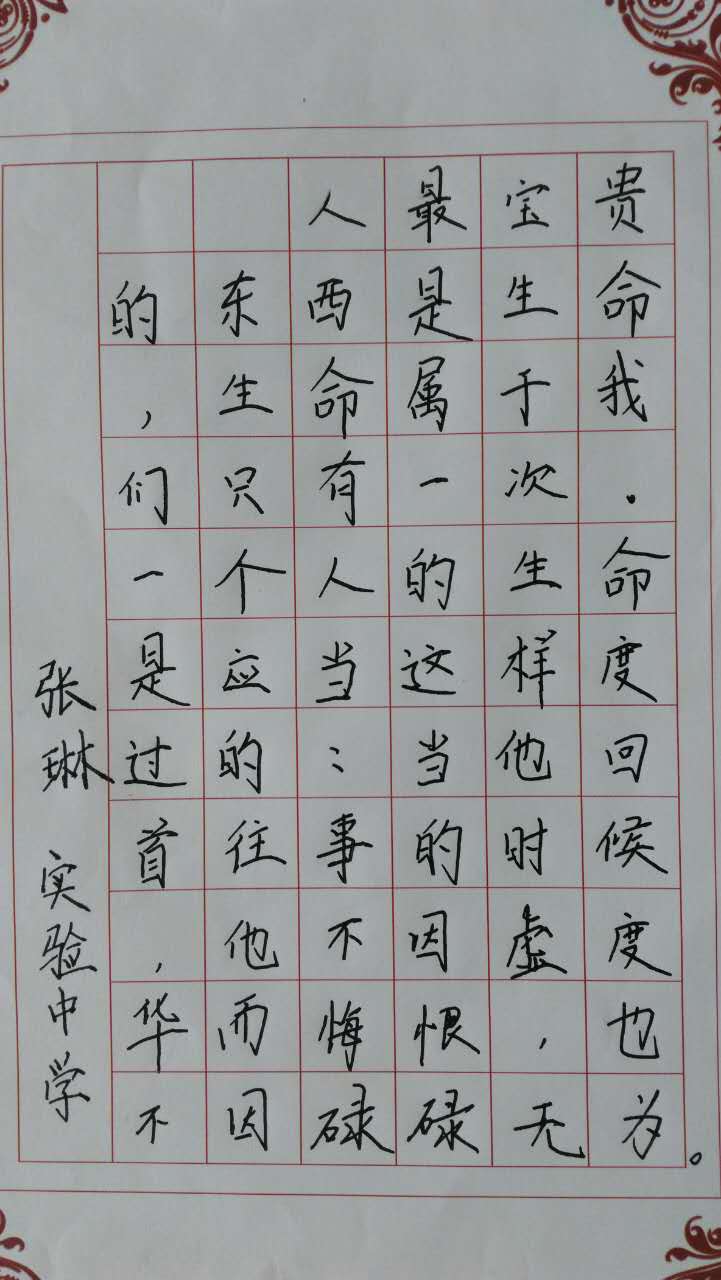 人最宝贵
的东西是生命
，生命属于我
们只有一次.
一个人的生命
是应当这样度
过的：当他回
首往事的时候
，他不因虚度
华而悔恨，也
不因碌碌无为。
张琳 实验中学